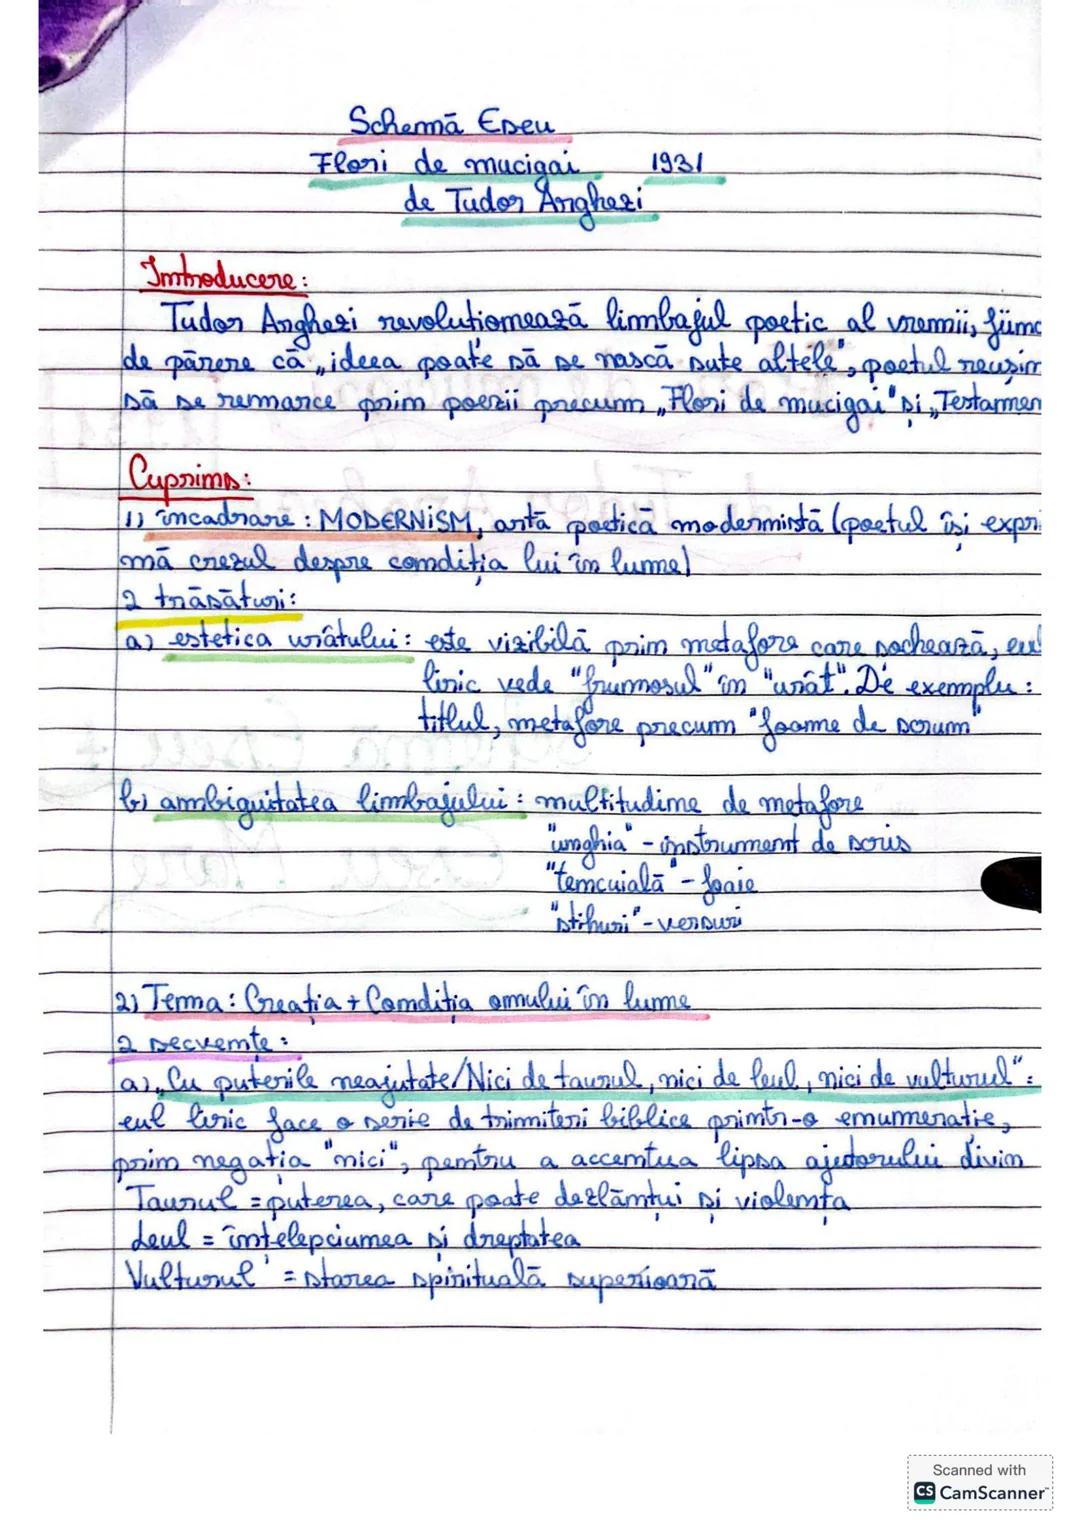 Schemă Eseu
Flori de mucigai 1931
de Tudor Arghezi
Introducere:
Tudor Arghezi revoluționează limbajul poetic al vremii, fiind
de părere că „ideea poate să se nască sute altele", poetul reușin
să se remarce prin poezii precum „Flori de mucigai" și „Testamen
Cuprins:
1) încadrare: MODERNISM, artă poetică modernistă (poetul își expri
mă crezul despre condiția lui în lume)
2 trăsături:
a) estetica urâtului: este vizibilă prin metafore care șochează, eul
liric vede "frumosul" în "urât". De exemplu:
titlul, metafore precum "foame de scrum"
b) ambiguitatea limbajului: multitudine de metafore
"unghia" - instrument de scris
"tencuială" - foaie
"stihuri" - versuri
2) Tema: Creația + Condiția omului în lume
2 secvențe:
a) „Cu puterile neajutate/Nici de taurul, nici de leul, nici de vulturul":
eul liric face o serie de trimiteri biblice printr-o enumerație,
prin negația "nici", pentru a accentua lipsa ajutorului divin
Taurul = puterea, care poate dezlănțui și violența
Leul = înțelepciunea și dreptatea
Vulturul = starea spirituală superioară
Scanned with
CS CamScanner